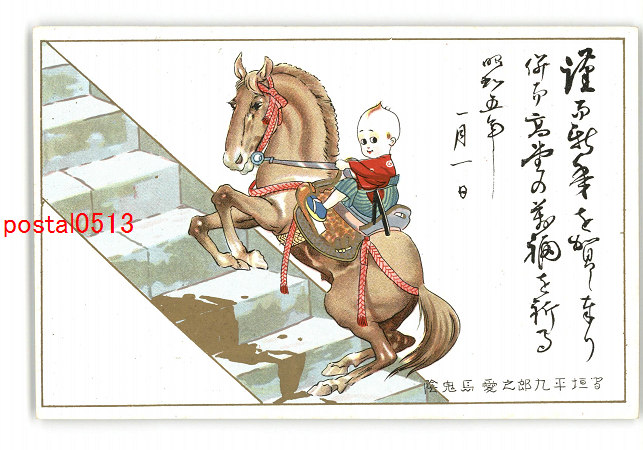 謹而新年を賀し奉り
併而高堂の萬福を祈る
昭和五年
一月一日
曲垣平九郎之愛馬鬼鹿陰
postal0513